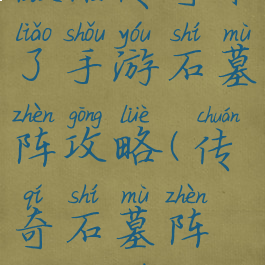 liǎo shǒu yóu shí mù
了手游石墓
zhèn gōng lüè chuán
阵攻略(传
qí shí mù zhèn
奇石墓阵